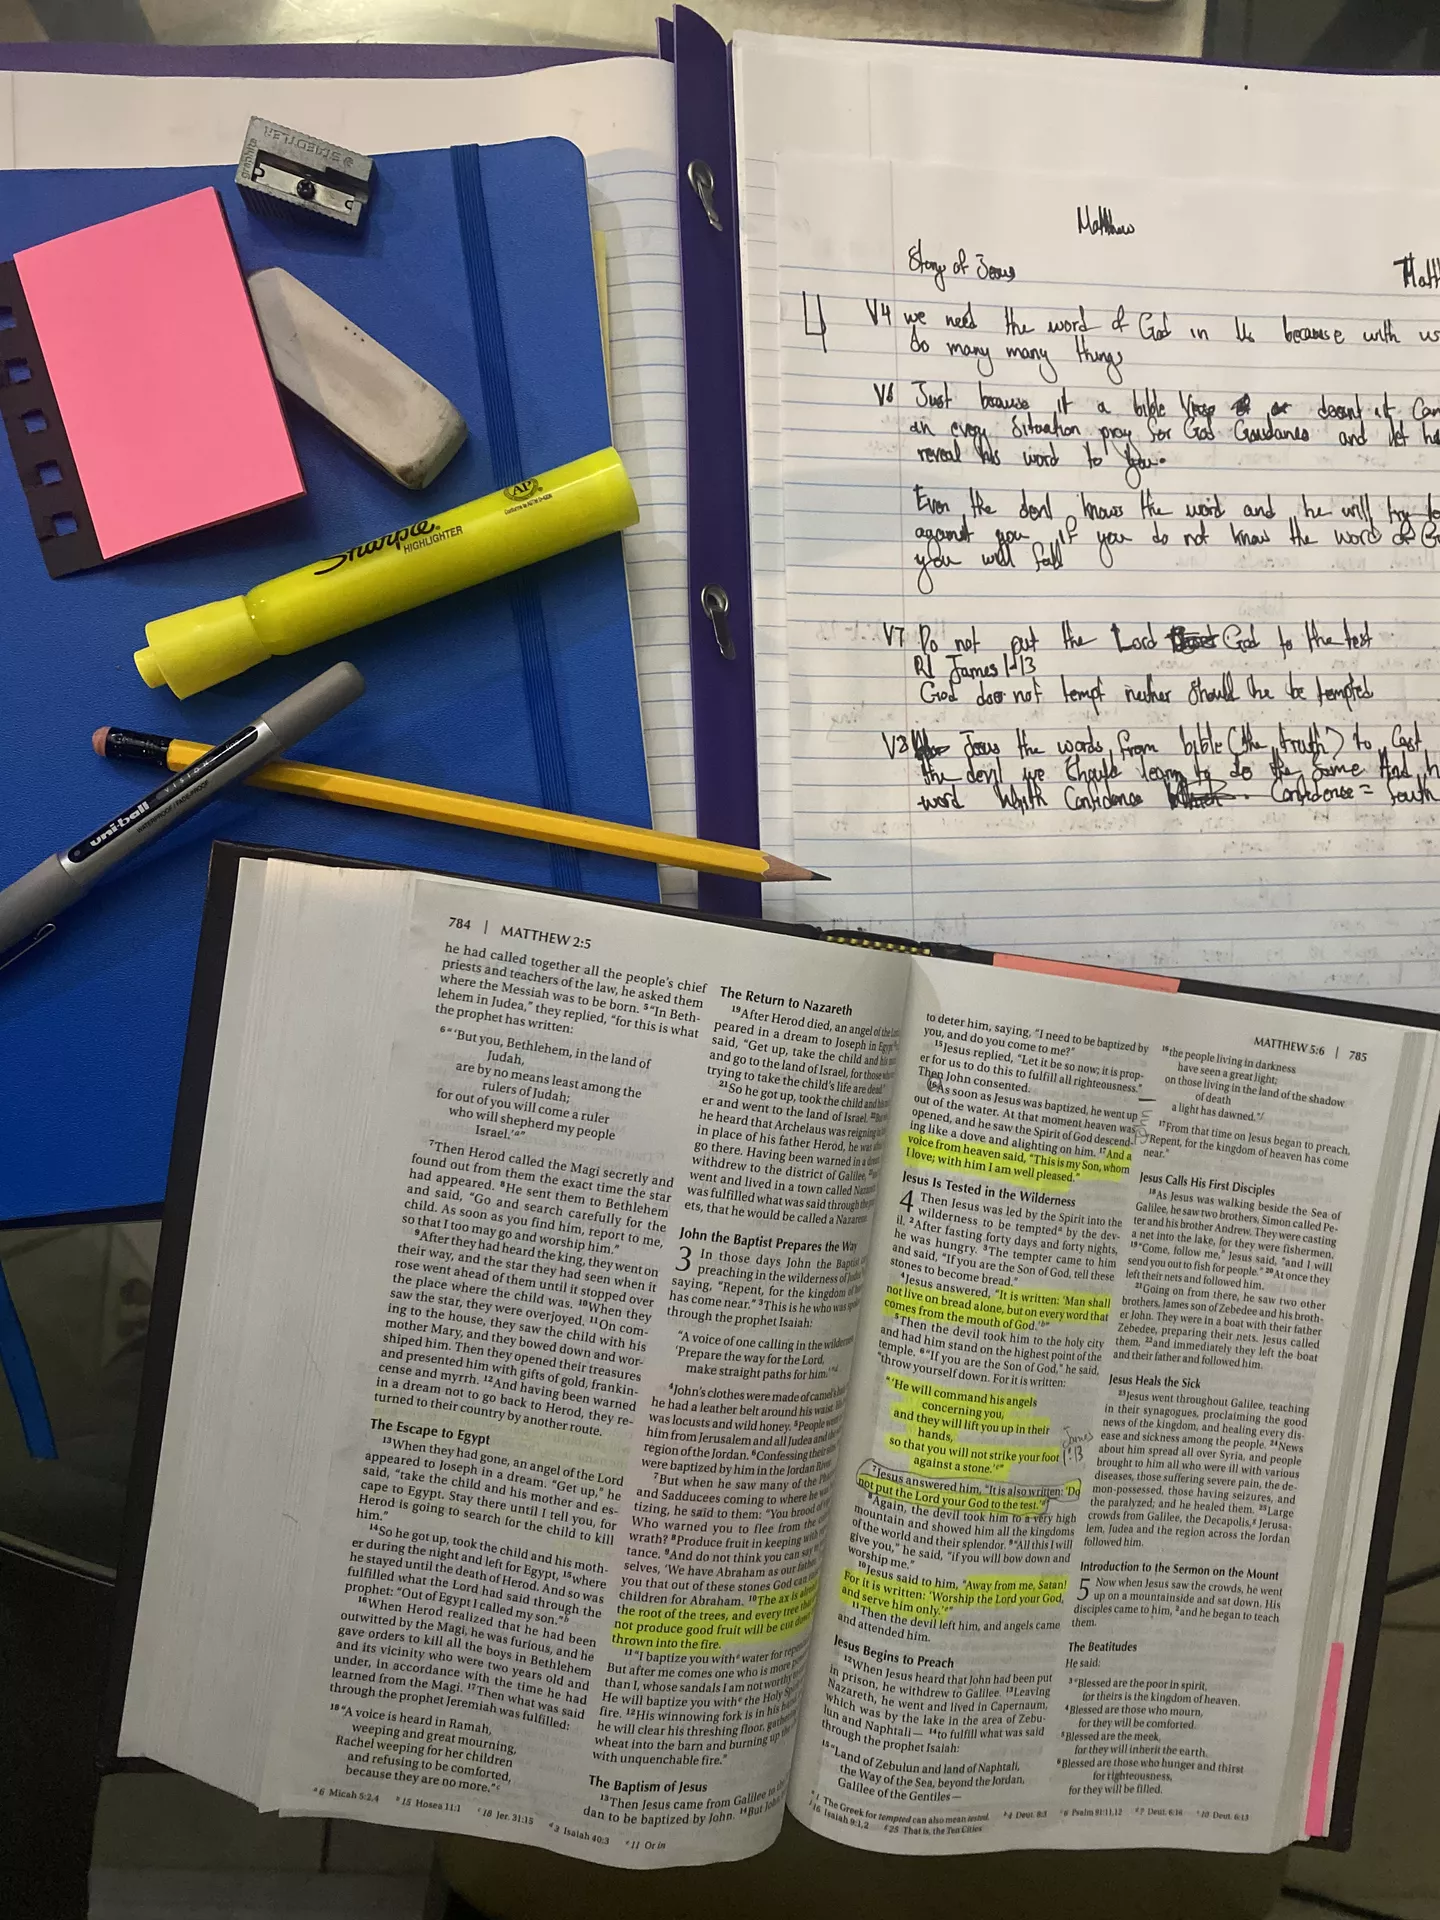 STAEDTLER
graphite
Sharpie®
HIGHLIGHTER
AP
uni-ball
VISION
WATERPROOF / FADE-PROOF
Matthew
Story of Jesus
Matt
4
V4 we need the word of God in us because with us
do many many things
V6 Just because it a bible verse or doesnt it can
an every situation pray for God Goudanes and let h
reveal his word to you.
Even the devil knows the word and he will try to
against you if you do not know the word of G
you will fall
V7 Do not put the Lord God to the test
Rf James 1:13
God does not tempt neither should he be tempted
V8 Jesus the words from bible (the truth) to cast
the devil we should learn to do the same And h
word With Confidence Confidence = faith
784 | MATTHEW 2:5
he had called together all the people's chief
priests and teachers of the law, he asked them
where the Messiah was to be born. 5"In Beth-
lehem in Judea," they replied, "for this is what
the prophet has written:
6"'But you, Bethlehem, in the land of
Judah,
are by no means least among the
rulers of Judah;
for out of you will come a ruler
who will shepherd my people
Israel.'a"
7Then Herod called the Magi secretly and
found out from them the exact time the star
had appeared. 8He sent them to Bethlehem
and said, "Go and search carefully for the
child. As soon as you find him, report to me,
so that I too may go and worship him."
9After they had heard the king, they went on
their way, and the star they had seen when it
rose went ahead of them until it stopped over
the place where the child was. 10When they
saw the star, they were overjoyed. 11On com-
ing to the house, they saw the child with his
mother Mary, and they bowed down and wor-
shiped him. Then they opened their treasures
and presented him with gifts of gold, frankin-
cense and myrrh. 12And having been warned
in a dream not to go back to Herod, they re-
turned to their country by another route.
The Escape to Egypt
13When they had gone, an angel of the Lord
appeared to Joseph in a dream. "Get up," he
said, "take the child and his mother and es-
cape to Egypt. Stay there until I tell you, for
Herod is going to search for the child to kill
him."
14So he got up, took the child and his moth-
er during the night and left for Egypt, 15where
he stayed until the death of Herod. And so was
fulfilled what the Lord had said through the
prophet: "Out of Egypt I called my son."b
16When Herod realized that he had been
outwitted by the Magi, he was furious, and he
gave orders to kill all the boys in Bethlehem
and its vicinity who were two years old and
under, in accordance with the time he had
learned from the Magi. 17Then what was said
through the prophet Jeremiah was fulfilled:
18"A voice is heard in Ramah,
weeping and great mourning,
Rachel weeping for her children
and refusing to be comforted,
because they are no more."c
The Return to Nazareth
19After Herod died, an angel of the
peared in a dream to Joseph in Egypt
said, "Get up, take the child and his
and go to the land of Israel, for those
trying to take the child's life are dead
21So he got up, took the child and his
er and went to the land of Israel.
he heard that Archelaus was reigning
in place of his father Herod, he was
go there. Having been warned in a
withdrew to the district of Galilee,
went and lived in a town called
was fulfilled what was said through the
ets, that he would be called a Nazarene
John the Baptist Prepares the Way
3 In those days John the Baptist
preaching in the wilderness of
saying, "Repent, for the kingdom of
has come near." 3This is he who was
through the prophet Isaiah:
"A voice of one calling in the
'Prepare the way for the Lord,
make straight paths for him.'"
4John's clothes were made of camel's
he had a leather belt around his waist.
was locusts and wild honey. 5People
him from Jerusalem and all Judea and
region of the Jordan. 6Confessing their
were baptized by him in the Jordan
7But when he saw many of the
and Sadducees coming to where he
tizing, he said to them: "You brood of
Who warned you to flee from the
wrath? 8Produce fruit in keeping with
tance. 9And do not think you can say
selves, 'We have Abraham as our
you that out of these stones God can
children for Abraham. 10The ax is
the root of the trees, and every tree
not produce good fruit will be cut
thrown into the fire.
11"I baptize you with water for
But after me comes one who is more
than I, whose sandals I am not
He will baptize you with the Holy
fire. 12His winnowing fork is in his
he will clear his threshing floor,
wheat into the barn and burning up
with unquenchable fire."
The Baptism of Jesus
13Then Jesus came from Galilee to
dan to be baptized by John. 14But
a 6 Micah 5:2,4 b 15 Hosea 11:1 c 18 Jer. 31:15 d 3 Isaiah 40:3 e 11 Or in
MATTHEW 5:6 | 785
to deter him, saying, "I need to be baptized by
you, and do you come to me?"
15Jesus replied, "Let it be so now; it is prop-
er for us to do this to fulfill all righteousness."
Then John consented.
16As soon as Jesus was baptized, he went up
out of the water. At that moment heaven was
opened, and he saw the Spirit of God descend-
ing like a dove and alighting on him. 17And a
voice from heaven said, "This is my Son, whom
I love; with him I am well pleased."
Jesus Is Tested in the Wilderness
4 Then Jesus was led by the Spirit into the
wilderness to be tempted by the dev-
il. 2After fasting forty days and forty nights,
he was hungry. 3The tempter came to him
and said, "If you are the Son of God, tell these
stones to become bread."
4Jesus answered, "It is written: 'Man shall
not live on bread alone, but on every word that
comes from the mouth of God.'b"
5Then the devil took him to the holy city
and had him stand on the highest point of the
temple. 6"If you are the Son of God," he said,
"throw yourself down. For it is written:
"'He will command his angels
concerning you,
and they will lift you up in their
hands,
so that you will not strike your foot
against a stone.'c"
James
1:13
7Jesus answered him, "It is also written: 'Do
not put the Lord your God to the test.'d"
8Again, the devil took him to a very high
mountain and showed him all the kingdoms
of the world and their splendor. 9"All this I will
give you," he said, "if you will bow down and
worship me."
10Jesus said to him, "Away from me, Satan!
For it is written: 'Worship the Lord your God,
and serve him only.'e"
11Then the devil left him, and angels came
and attended him.
Jesus Begins to Preach
12When Jesus heard that John had been put
in prison, he withdrew to Galilee. 13Leaving
Nazareth, he went and lived in Capernaum,
which was by the lake in the area of Zebu-
lun and Naphtali— 14to fulfill what was said
through the prophet Isaiah:
15"Land of Zebulun and land of Naphtali,
the Way of the Sea, beyond the Jordan,
Galilee of the Gentiles—
16the people living in darkness
have seen a great light;
on those living in the land of the shadow
of death
a light has dawned."f
17From that time on Jesus began to preach,
"Repent, for the kingdom of heaven has come
near."
Jesus Calls His First Disciples
18As Jesus was walking beside the Sea of
Galilee, he saw two brothers, Simon called Pe-
ter and his brother Andrew. They were casting
a net into the lake, for they were fishermen.
19"Come, follow me," Jesus said, "and I will
send you out to fish for people." 20At once they
left their nets and followed him.
21Going on from there, he saw two other
brothers, James son of Zebedee and his broth-
er John. They were in a boat with their father
Zebedee, preparing their nets. Jesus called
them, 22and immediately they left the boat
and their father and followed him.
Jesus Heals the Sick
23Jesus went throughout Galilee, teaching
in their synagogues, proclaiming the good
news of the kingdom, and healing every dis-
ease and sickness among the people. 24News
about him spread all over Syria, and people
brought to him all who were ill with various
diseases, those suffering severe pain, the de-
mon-possessed, those having seizures, and
the paralyzed; and he healed them. 25Large
crowds from Galilee, the Decapolis,g Jerusa-
lem, Judea and the region across the Jordan
followed him.
Introduction to the Sermon on the Mount
5 Now when Jesus saw the crowds, he went
up on a mountainside and sat down. His
disciples came to him, 2and he began to teach
them.
The Beatitudes
He said:
3"Blessed are the poor in spirit,
for theirs is the kingdom of heaven.
4Blessed are those who mourn,
for they will be comforted.
5Blessed are the meek,
for they will inherit the earth.
6Blessed are those who hunger and thirst
for righteousness,
for they will be filled.
a 1 The Greek for tempted can also mean tested. b 4 Deut. 8:3 c 6 Psalm 91:11,12 d 7 Deut. 6:16 e 10 Deut. 6:13
f 16 Isaiah 9:1,2 g 25 That is, the Ten Cities